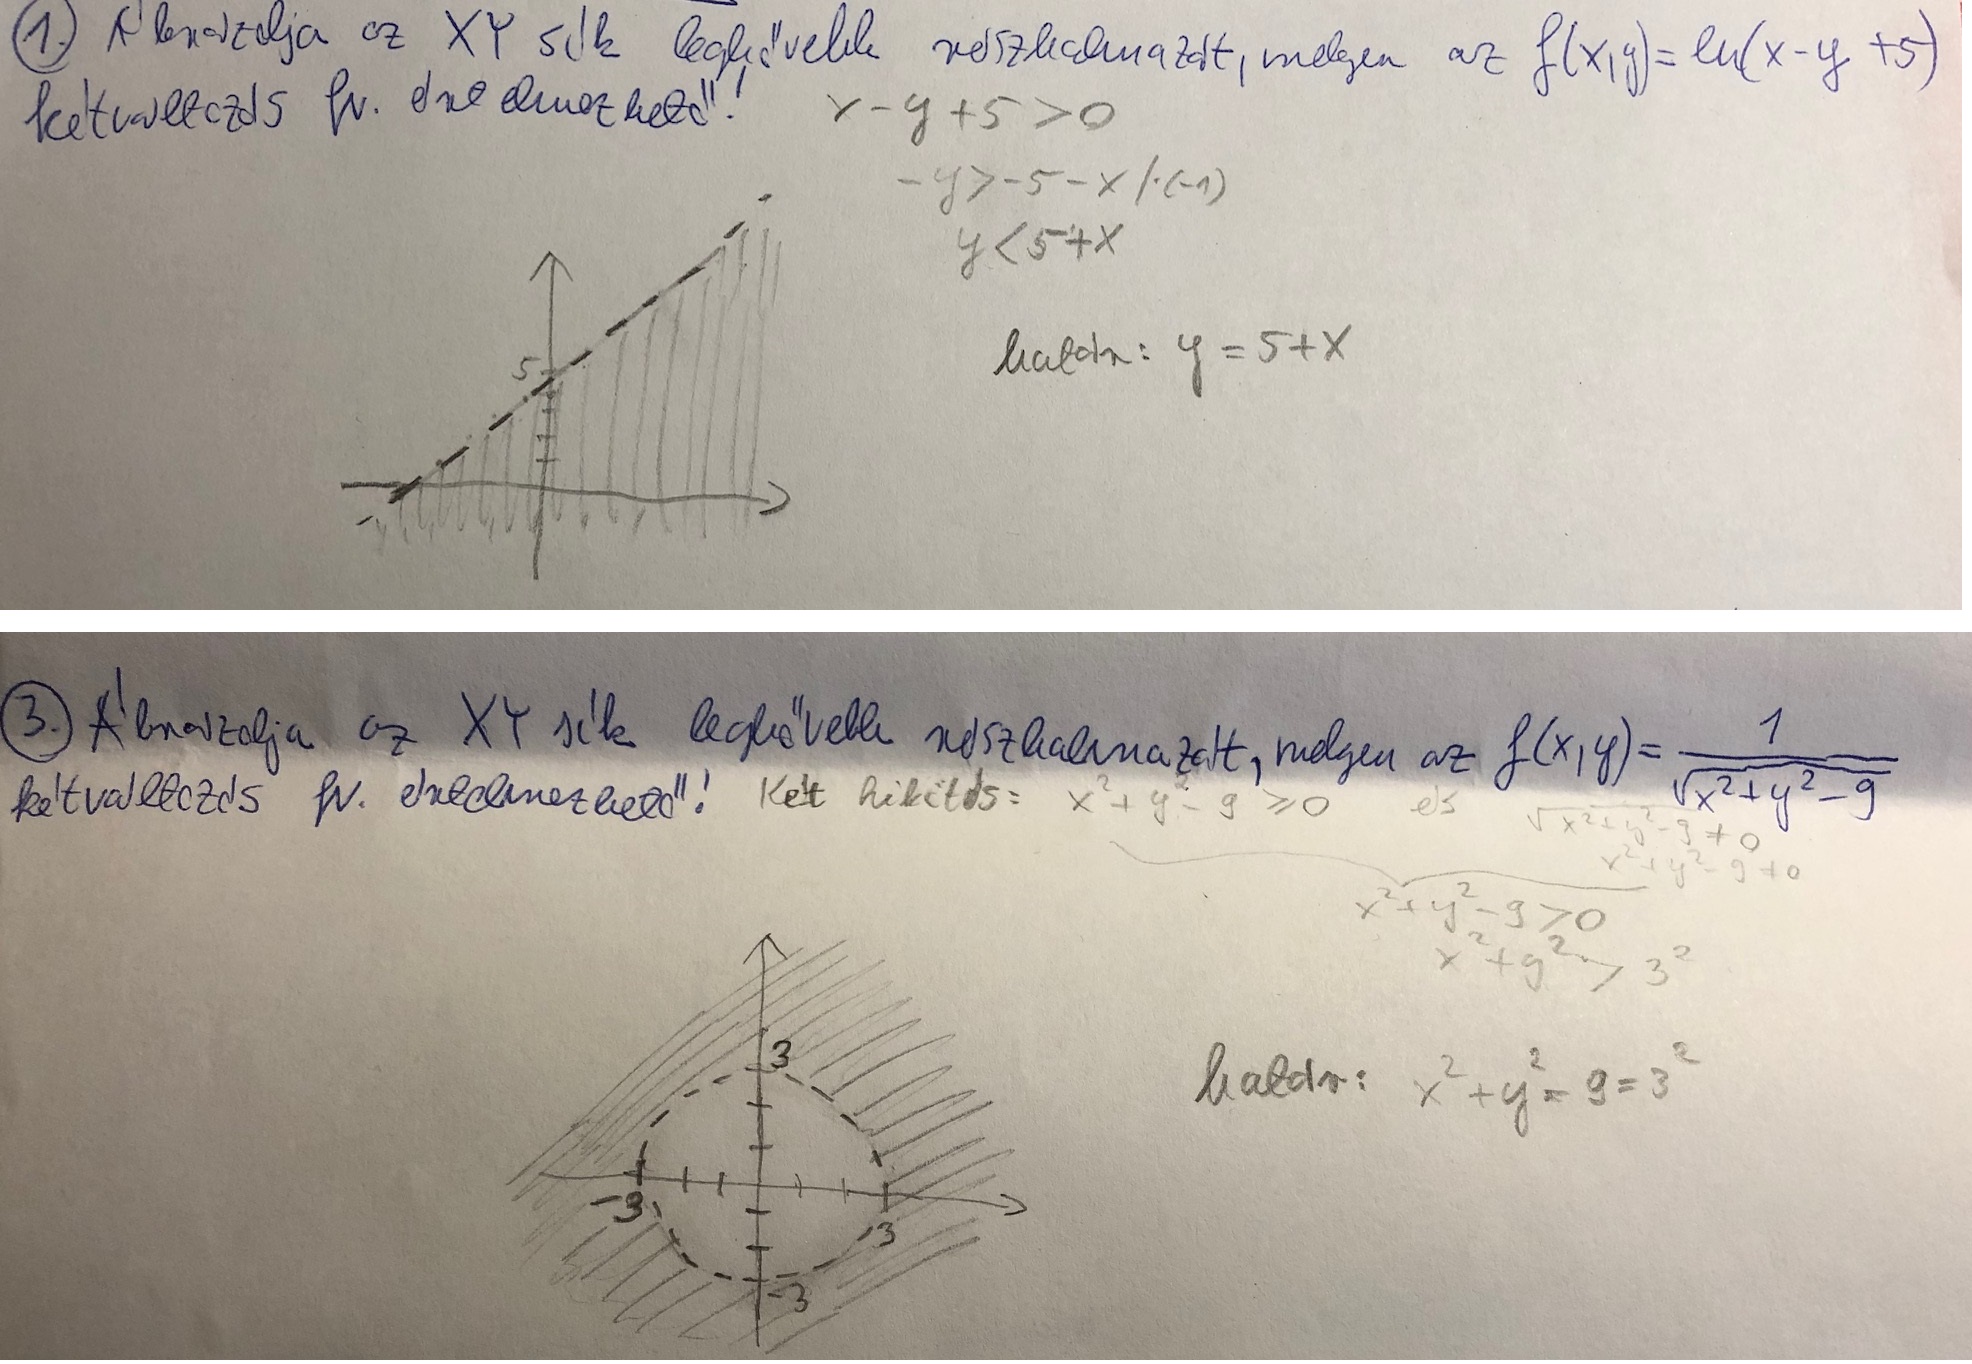 1. Ábrázolja az XY sík legbővebb részhalmazát, melyen az f(x,y)=ln(x-y+5)
kétváltozós fv. értelmezhető!
x-y+5>0
-y>-5-x /·(-1)
y<5+x
5
határ: y=5+x
3. Ábrázolja az XY sík legbővebb részhalmazát, melyen az f(x,y)=1/√(x²+y²-9)
kétváltozós fv. értelmezhető! Két kikötés: x²+y²-9≥0 és √(x²+y²-9)≠0
x²+y²-9≠0
x²+y²-9>0
x²+y²>3²
3
határ: x²+y²=9=3²
-3
3
-3